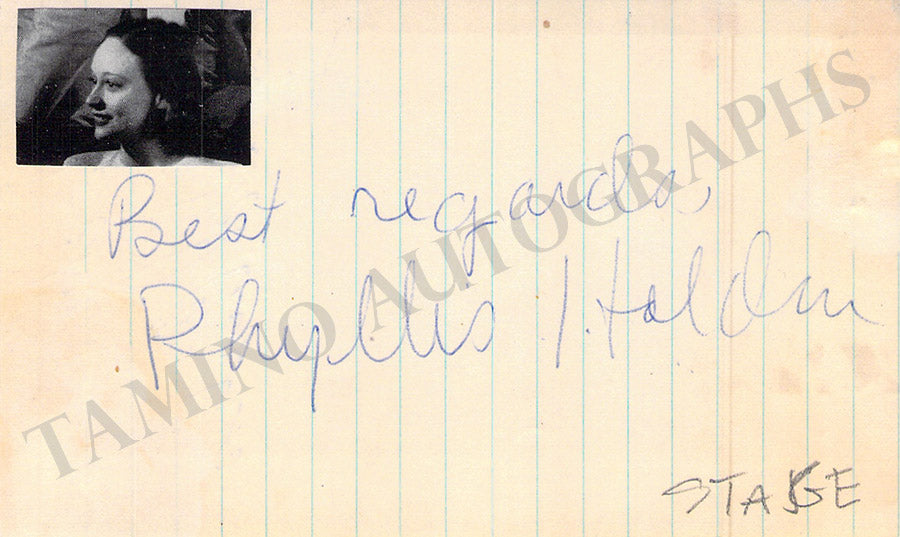 Best regards,
Phyllis Holden
STAGE
TAMINO AUTOGRAPHS